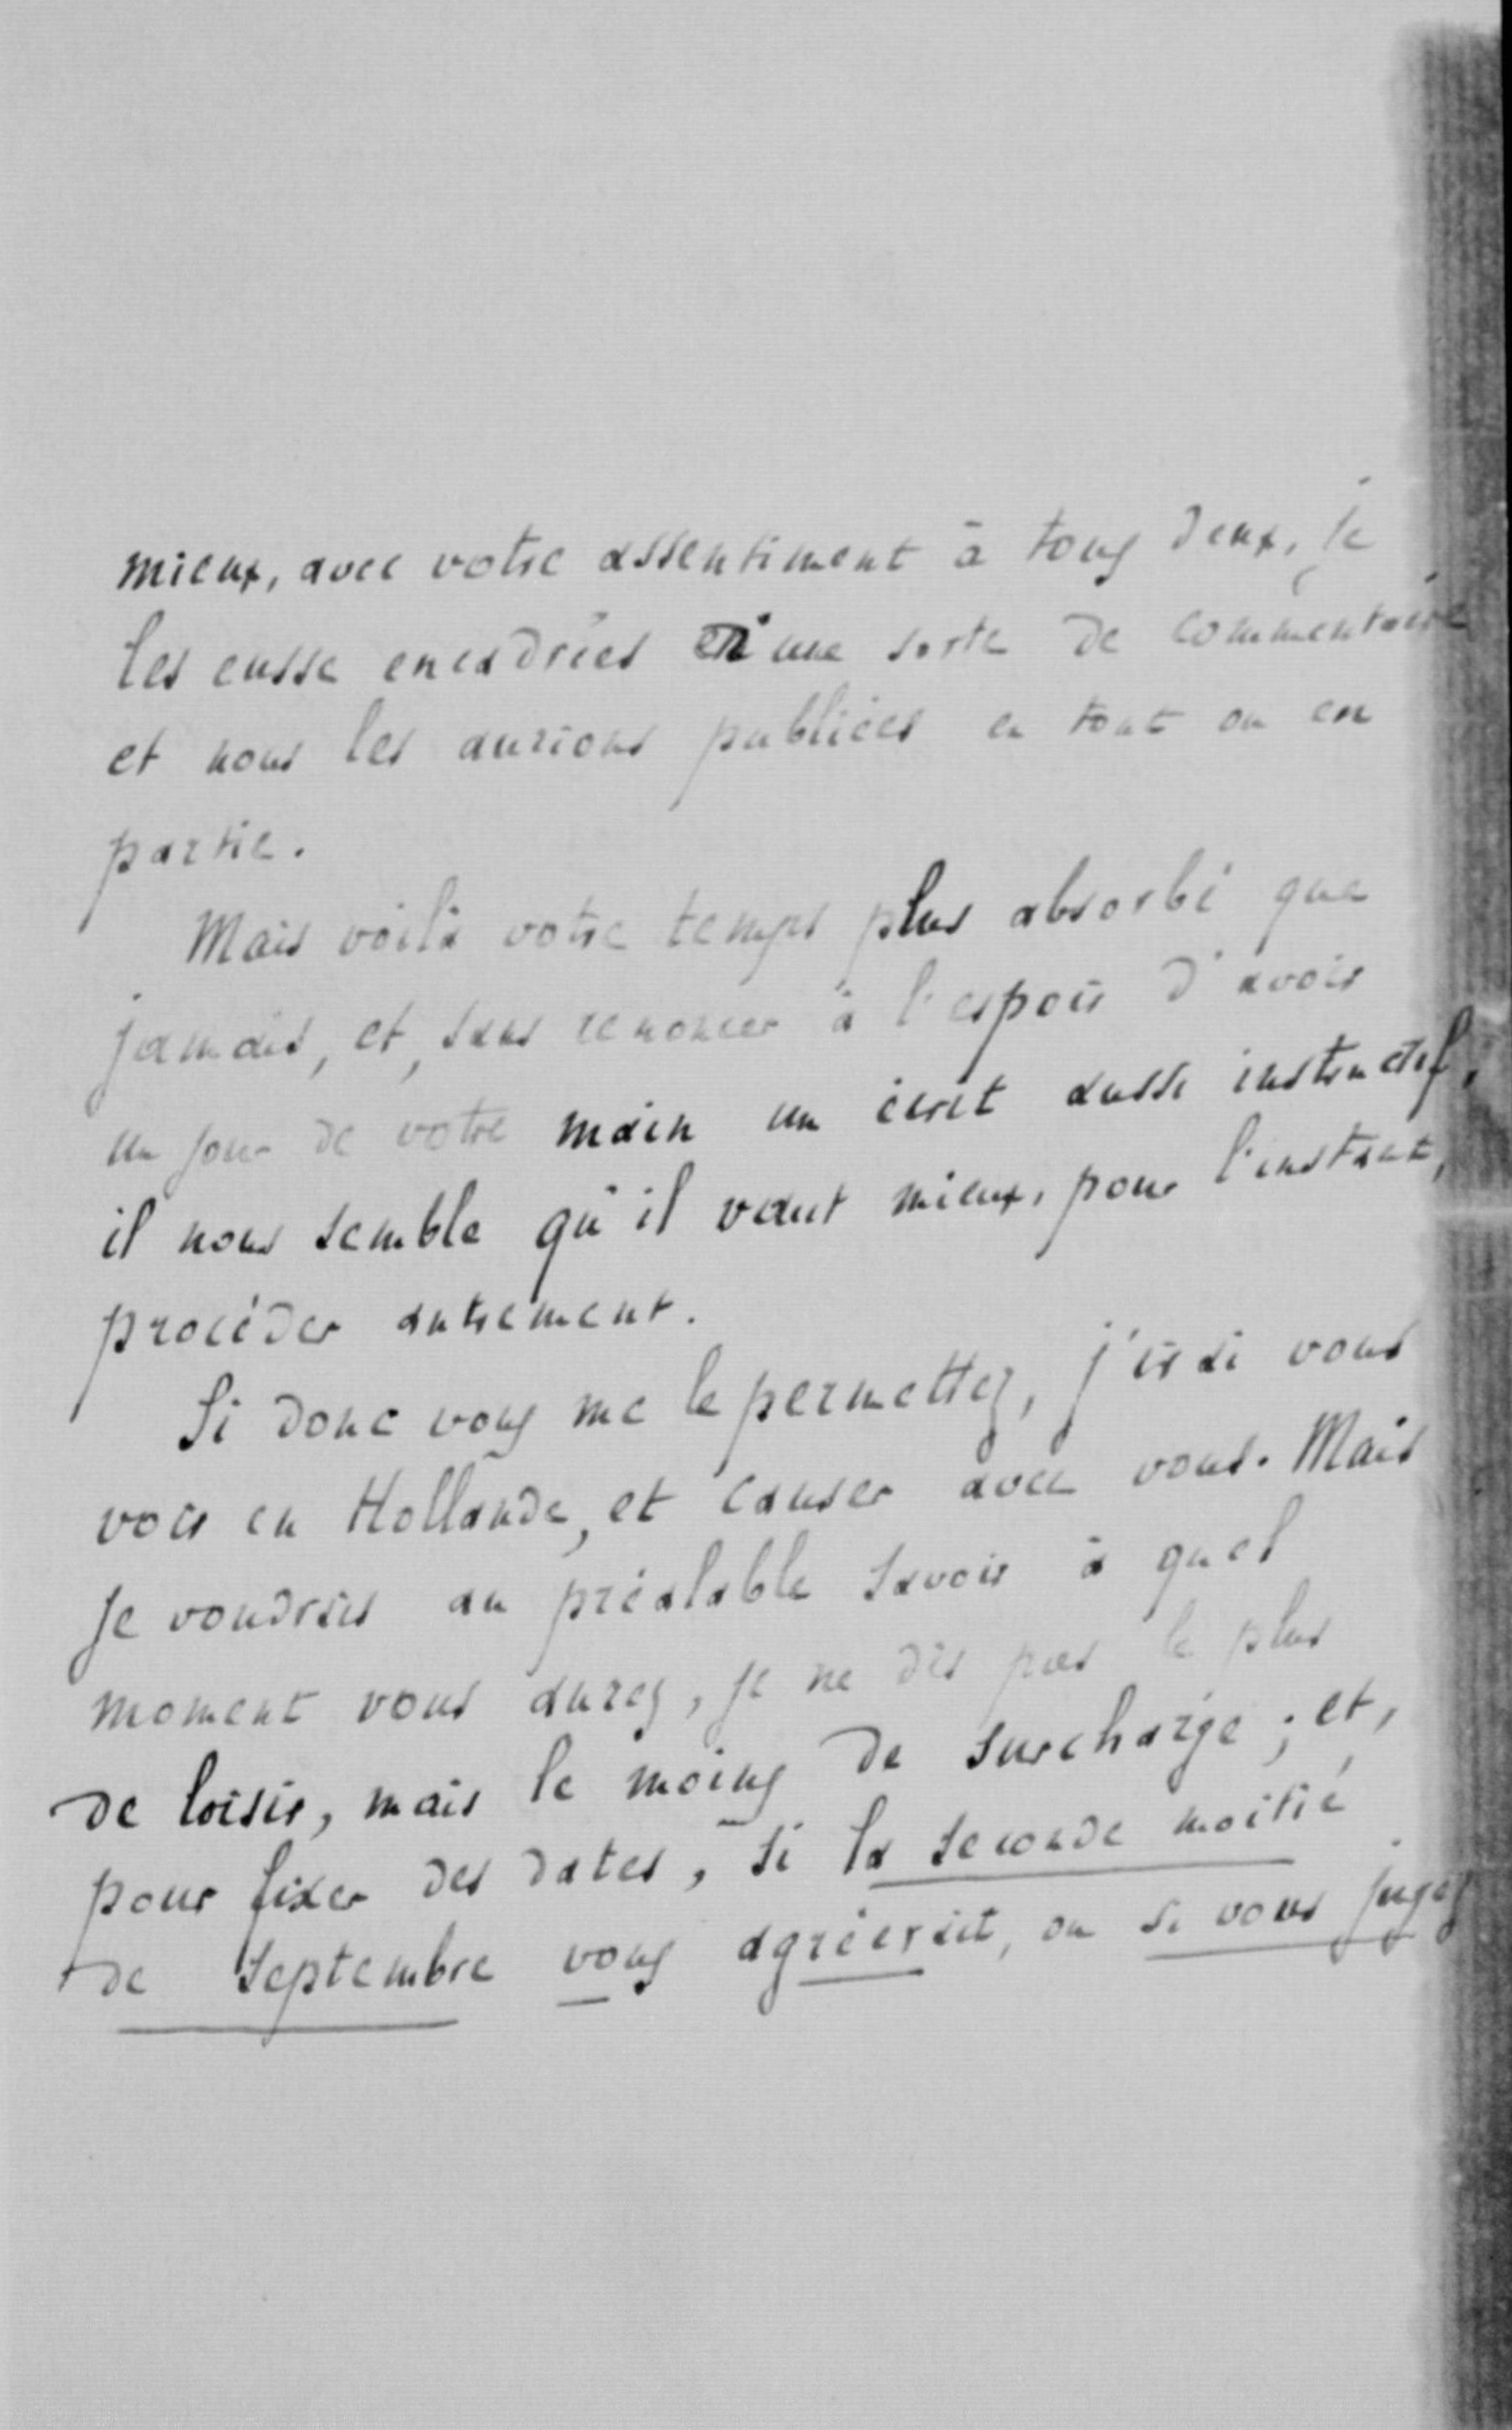 mieux, avec votre assentiment à tous deux, je
les eusse encadrées en une sorte de commentaire
et nous les aurions publiées en tout ou en
partie.
Mais voilà votre temps plus absorbé que
jamais, et, sans renoncer à l'espoir d'avoir
un jour de votre main un écrit aussi instructif,
il nous semble qu'il vaut mieux, pour l'instant,
procéder autrement.
Si donc vous me le permettez, j'irai vous
voir en Hollande, et causer avec vous. Mais
je voudrais au préalable savoir à quel
moment vous aurez, je ne dis pas le plus
de loisir, mais le moins de surcharge ; et,
pour fixer des dates, si la seconde moitié
de Septembre vous agréerait, ou si vous jugez